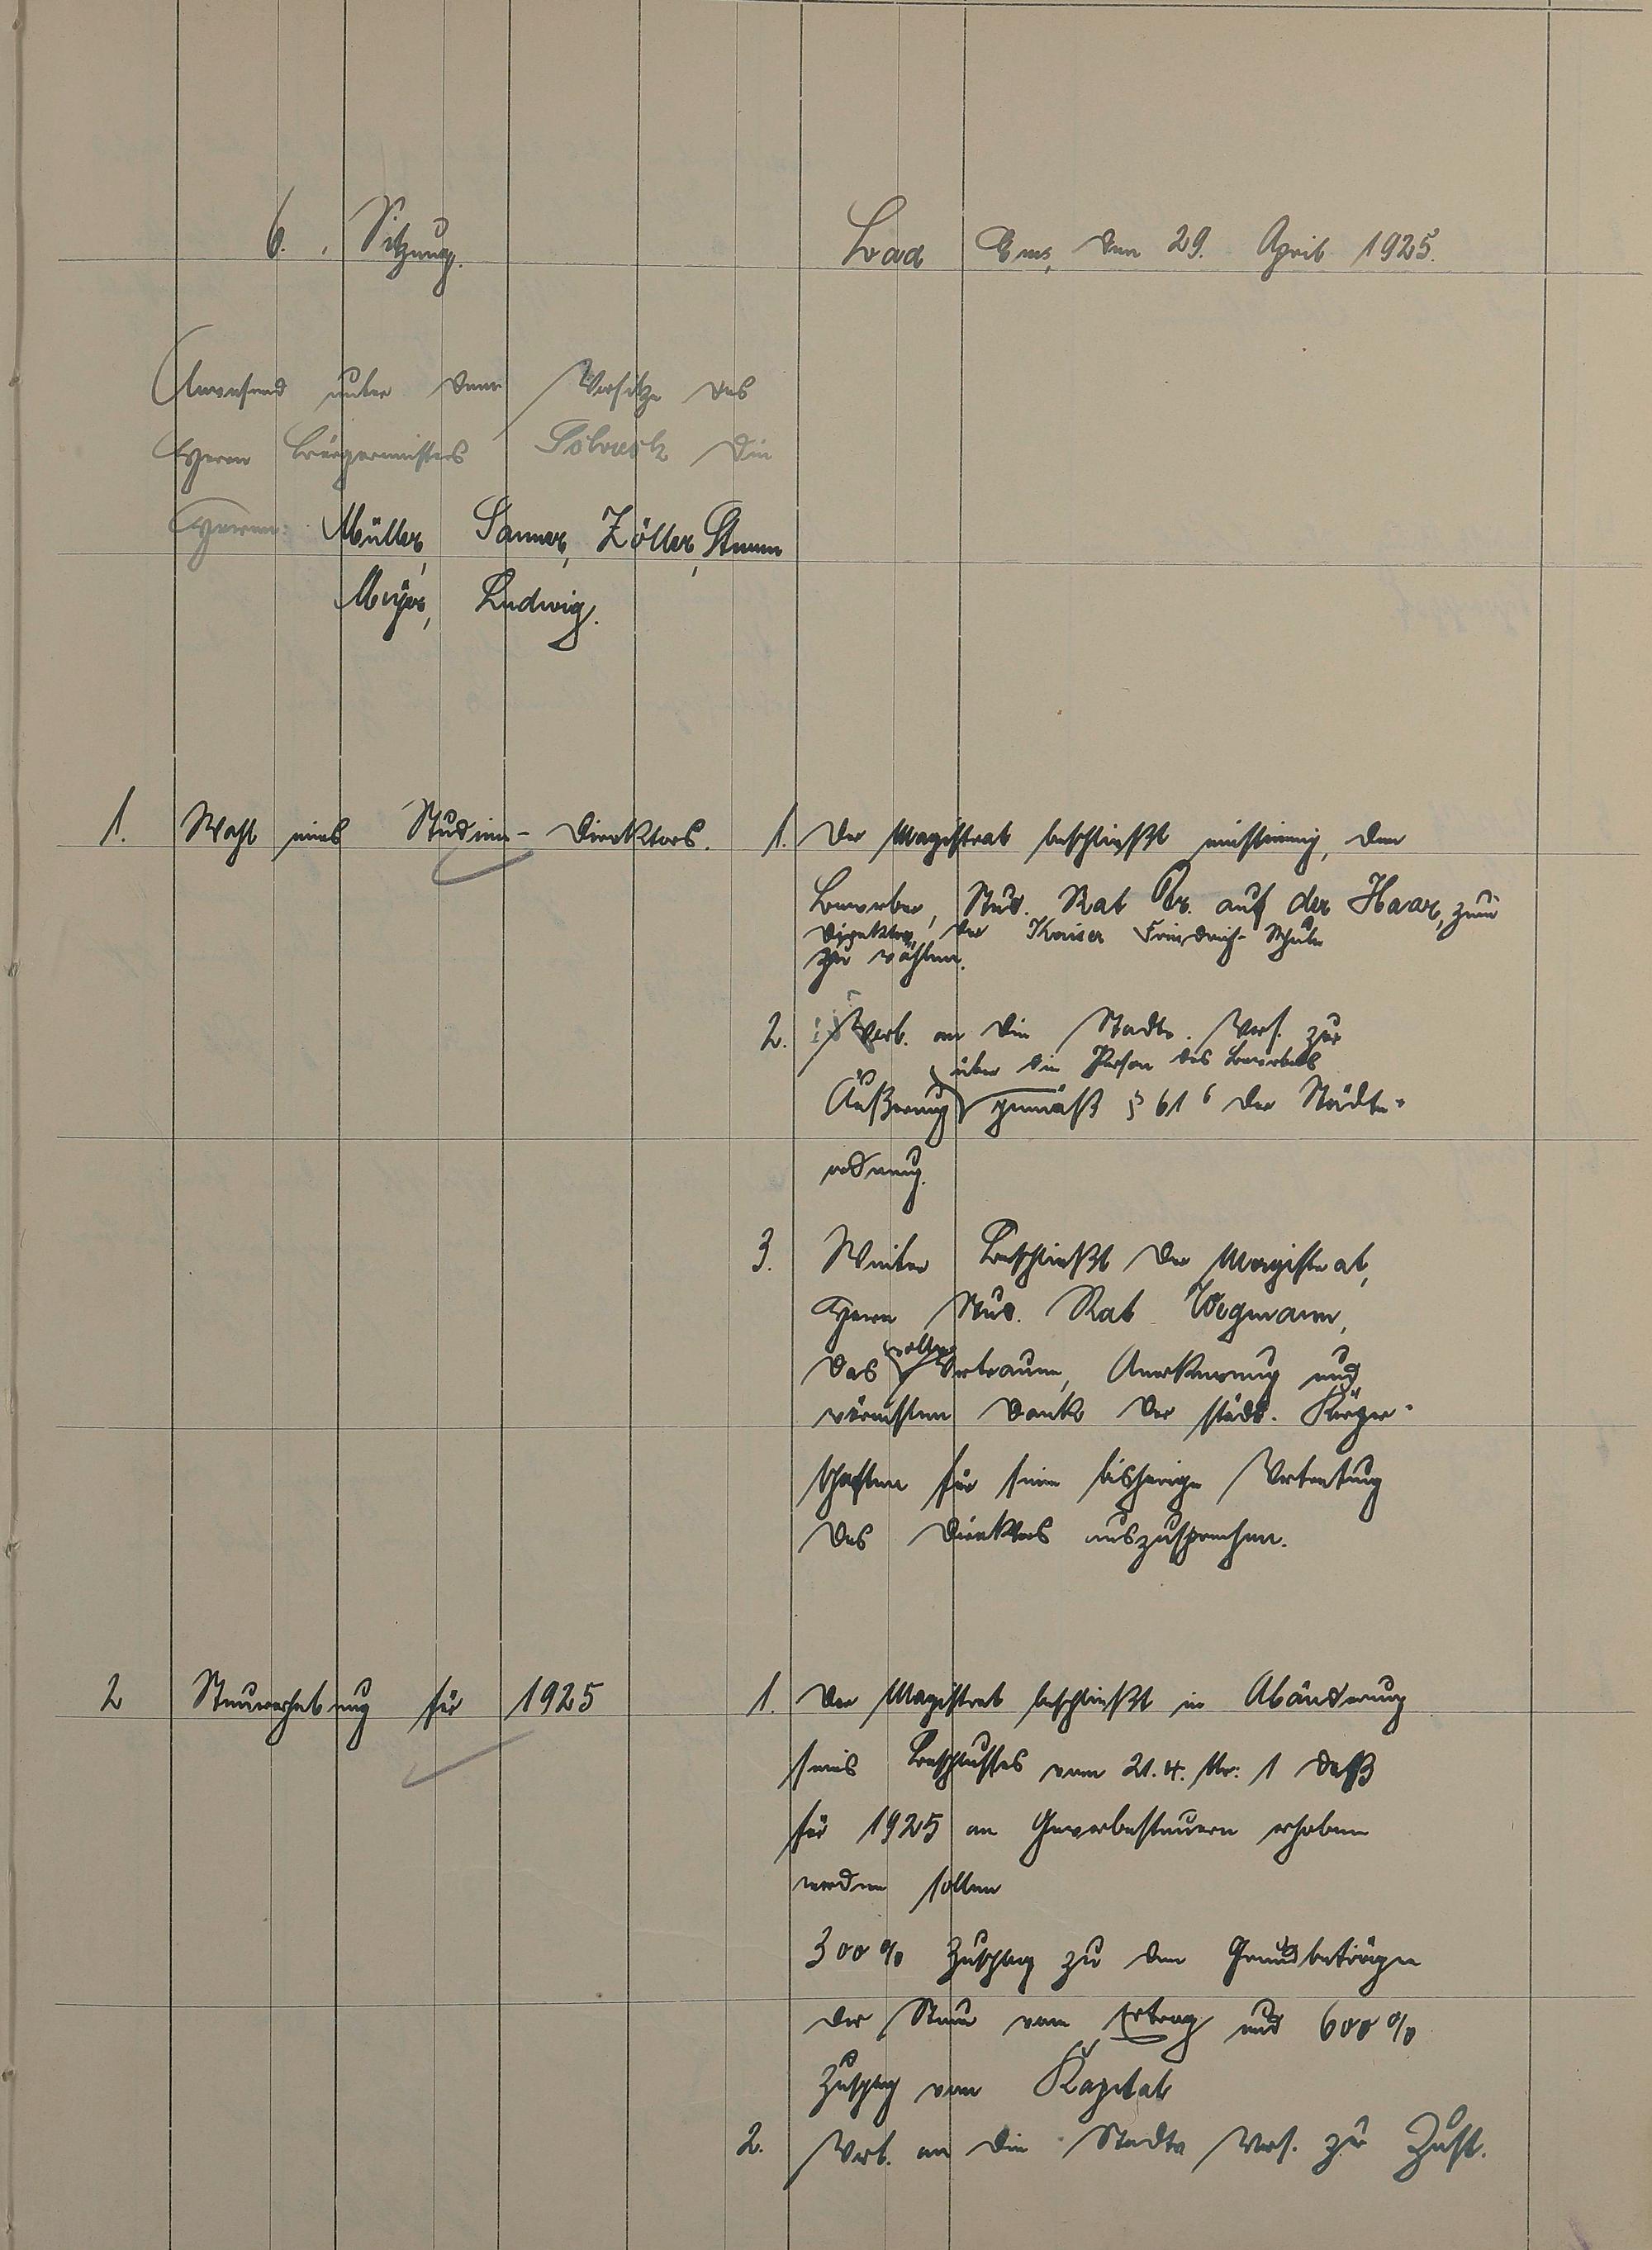 6. Sitzung.
Bad Ems, den 29. April 1925.
Anwesend unter dem Vorsitze des
Herrn Bürgermeisters die
Herren: Müller, Sanner, Zöller, Stumm
Meyer, Ludwig.
1. Wahl eines Studien-Direktors.
1. Der Magistrat beschließt einstimmig, den
Bewerber, Stud. Rat Dr. auf der Haar, zum
Direktor der Kaiser Friedrich-Schule
zu wählen.
2. Vorl. an die Stadtv. Vers. zur
über die Person des Bewerbers
Äußerung gemäß § 61 6 der Städte-
ordnung.
3. Weiter beschließt der Magistrat,
Herrn Stud. Rat Wegmann,
volle
das Vertrauen, Anerkennung und
wärmsten Dank der städt. Körper-
schaften für seine bisherige Vertretung
des Direktors auszusprechen.
2 Steuererhebung für 1925
1. Der Magistrat beschließt in Abänderung
seines Beschlusses vom 21.4. Nr: 1 daß
für 1925 an Gewerbesteuern erhoben
werden sollen
300% Zuschlag zu den Grundbeträgen
der Steuer vom Ertrag und 600%
Zuschlag vom Kapital
2. Vorl. an die Stadtv Vers. zur Zust.